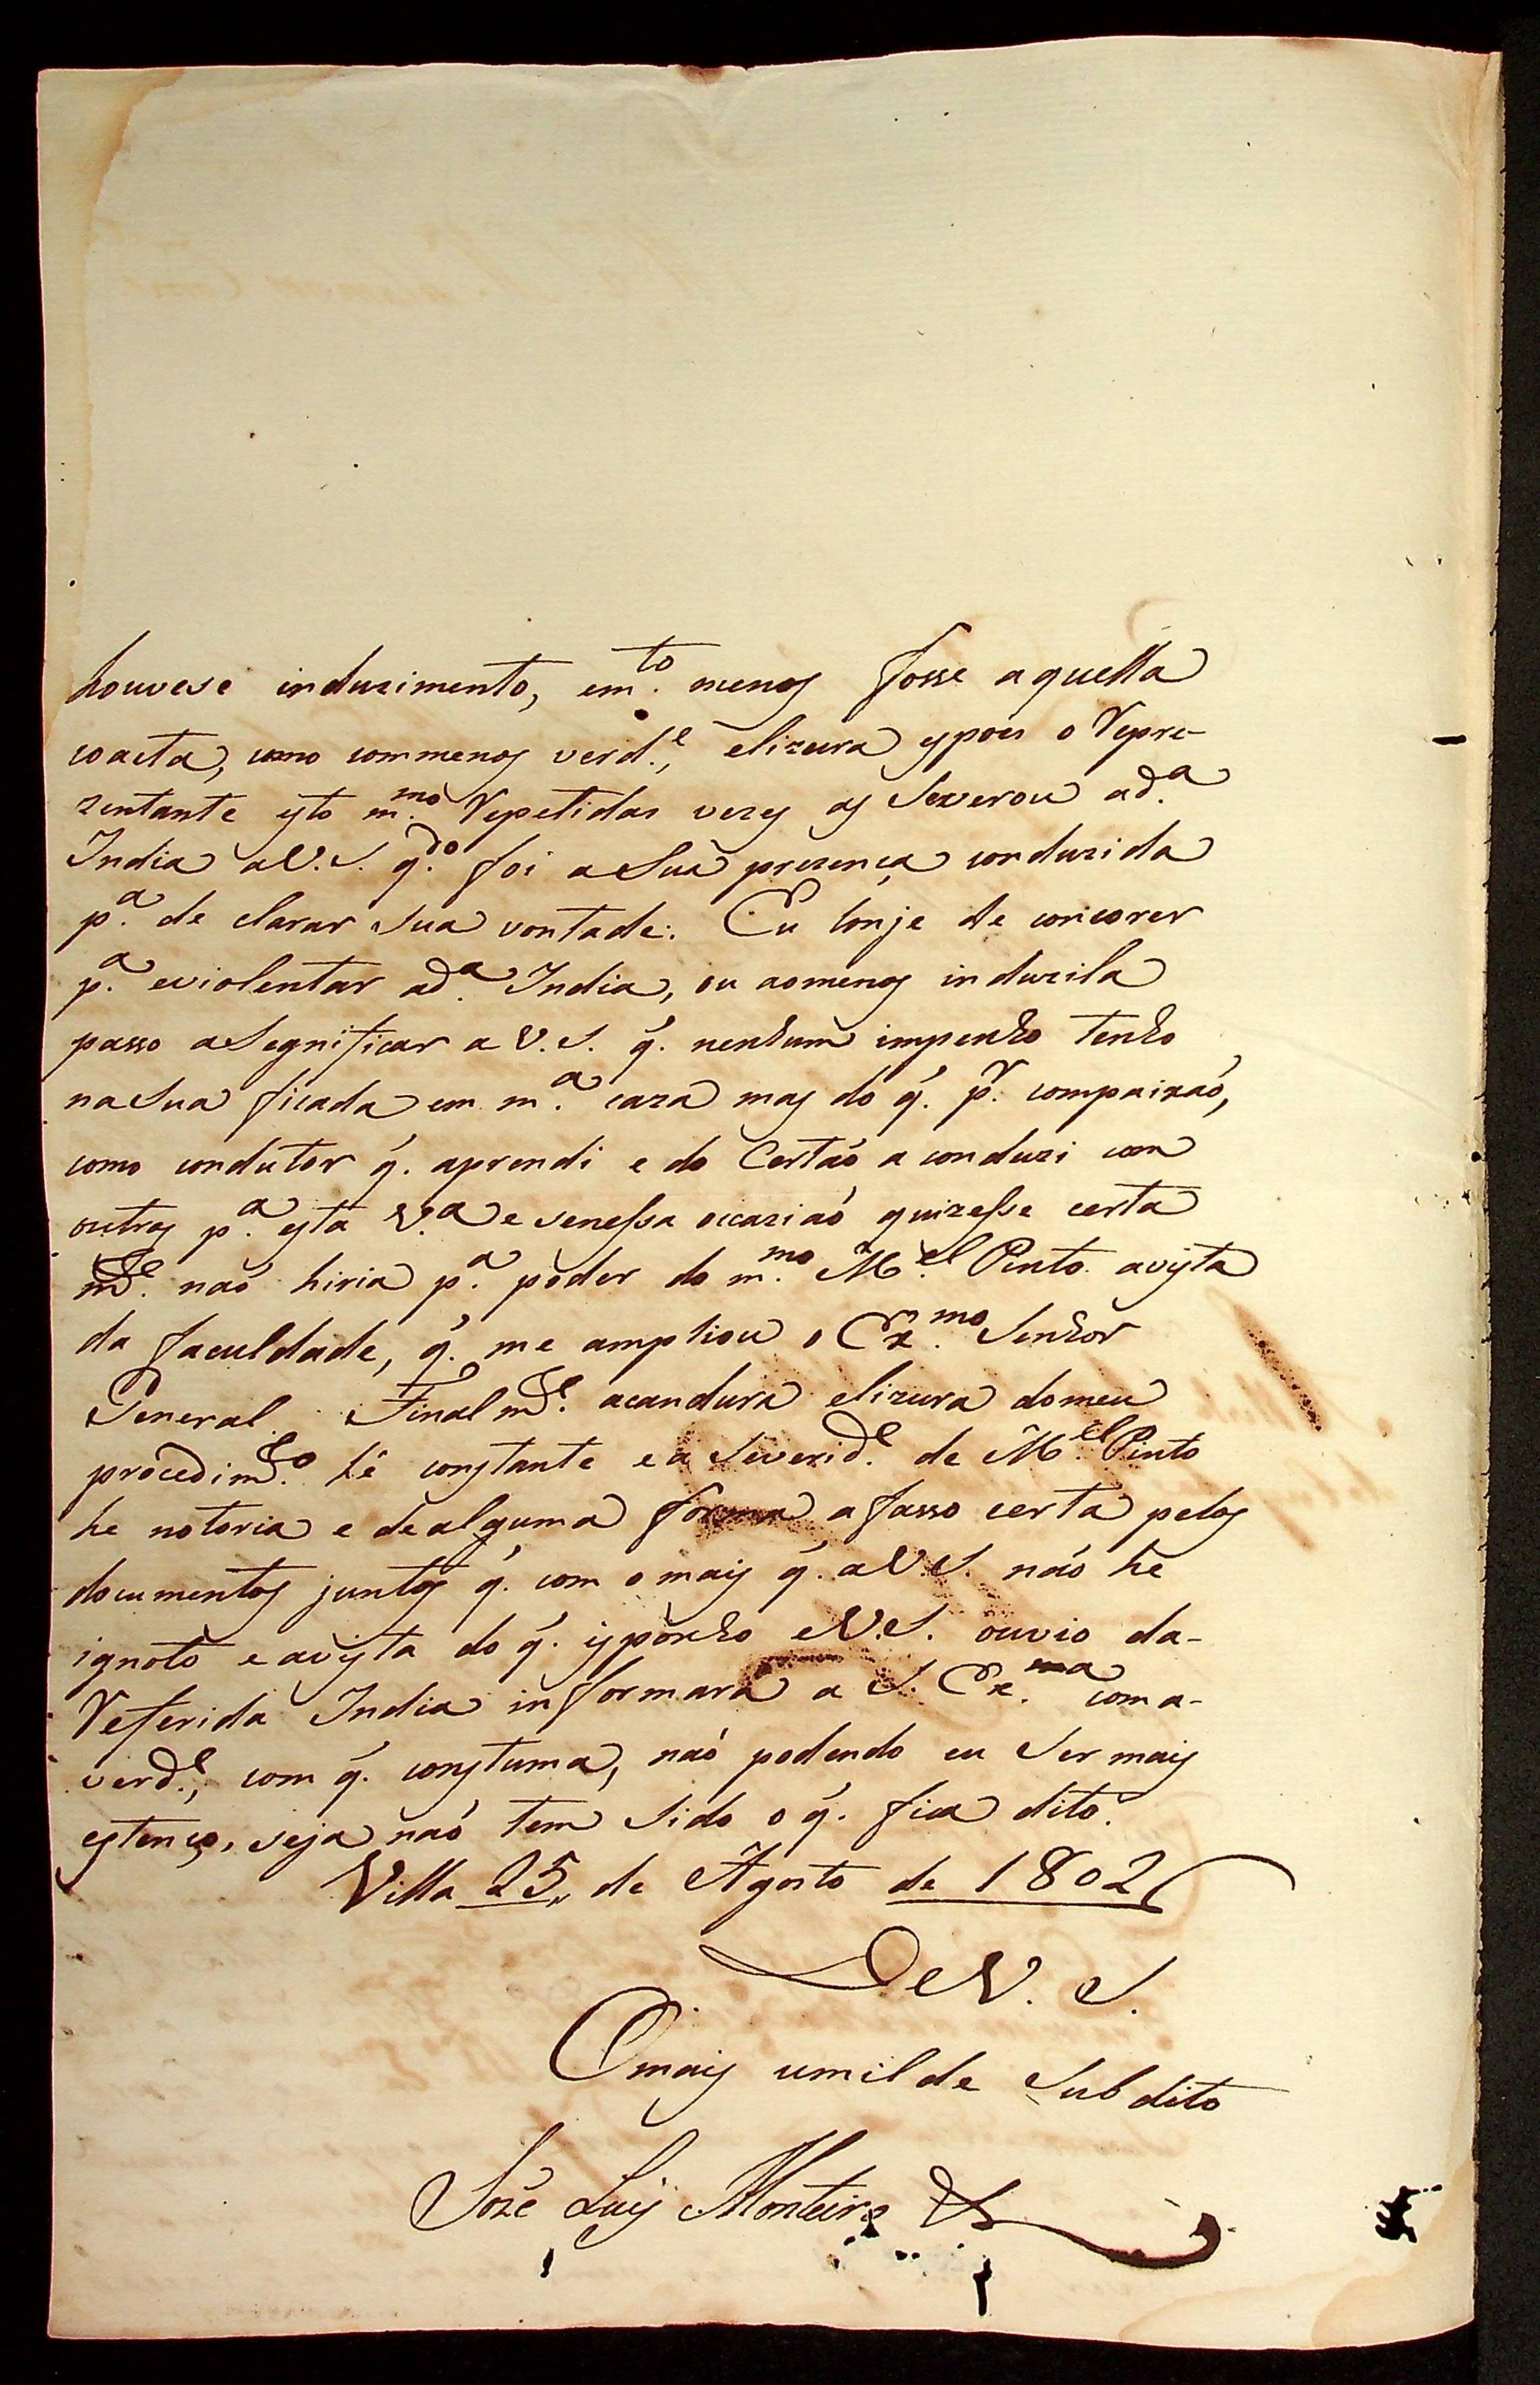 houvese induzimento, em.to menos fosse aquella
coacta, como commenos verd.e, elizura espoes o Repre-
zentante isto m.mo Repetidas vezes as Severou ad.a
India a V. S. q.do foi a Sua prezença conduzida
p.a de clarar Sua vontade. Eu lonje de concorer
p.a eviolentar ad.a India, ou aomenos induzila
passo aSegnificar a V. S. q. nenhum impenho tenho
naSua ficada em m.a caza mas do q. p.r compaixaó,
como condutor q. aprendi e do Certaó a conduzi com
outros p.a esta V.a e senessa occaziaó quizesse certa
m.te naó hiria p.a poder do m.mo M.el Pinto avista
da faculdade, q. me ampliou o Ex.mo Senhor
General. Finalm.te acandura elizura domeu
procedim.to hé constante e a Severid.e de M.el Pinto
he notoria e dealguma forma afasso certa pelos
documentos juntos q. com omais q. aV.S. naó he
ignoto eavista do q. isponho eV.S. ouvio da-
Referida India informará a S. Ex.ma coma-
verd.e, com q. constuma, naó podendo eu Ser mais
estenço, seja naó tem Sido o q. fica dito.
Villa 25 de Agosto de 1802
DeV. S.
Omais umilde Subdito
Joze Luis Monteiro